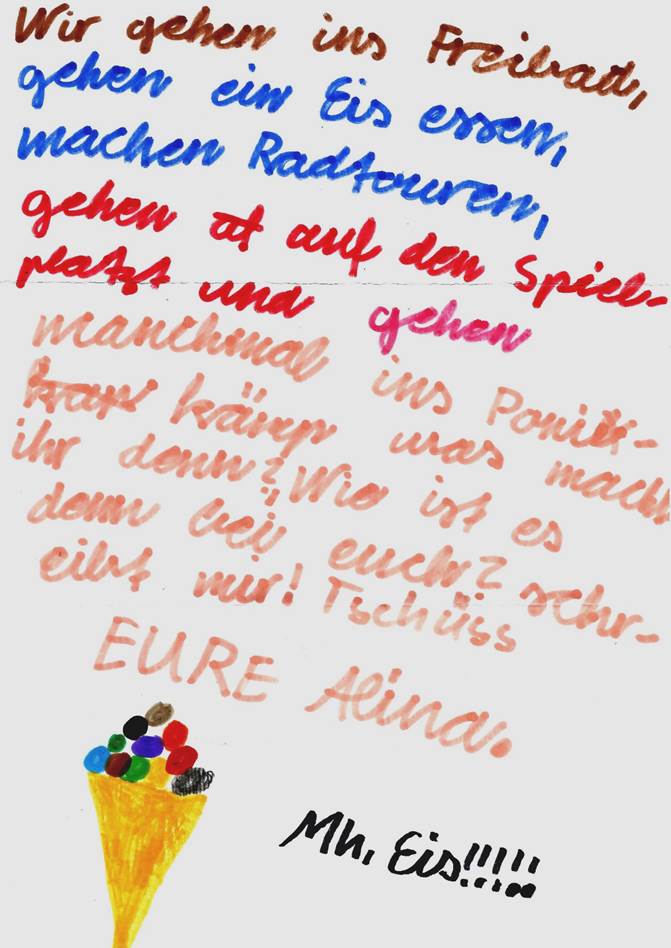 Wir gehen ins Freibad,
gehen ein Eis essen,
machen Radtouren,
gehen oft auf den Spiel-
platzt und gehen
manchmal ins Ponik-
kämp was macht
ihr denn? Wie ist es
denn bei euch? schr-
eibt mir! Tschüss
EURE Alina.
Mh, Eis!!!!!